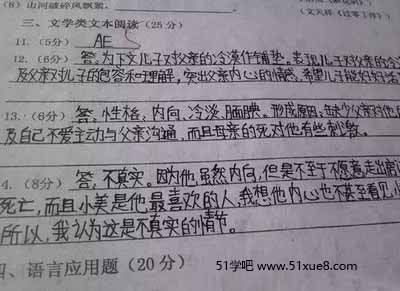 (6) 山河破碎风飘絮,
(文天祥《过零丁洋》)
三、文学类文本阅读(25分)
11. (5分) AE
12. (6分) 答,为下文儿子对父亲的冷漠作铺垫。表现儿子对父亲的冷
及父亲对儿子的包容和理解,突出父亲内心的情感,希望儿子能好好活
13. (6分) 答,性格:内向,冷淡,腼腆。形成原因:缺少父亲对他的
及自己不爱主动与父亲沟通,而且母亲的死对他有些刺激。
4. (8分) 答,不真实。因为他虽然内向,但是不至于不愿意走出
死亡,而且小美是他最喜欢的人,我想他内心也不甚至看见小
所以,我认为这是不真实的情节。
四、语言应用题(20分)
51学吧 www.51xue8.com